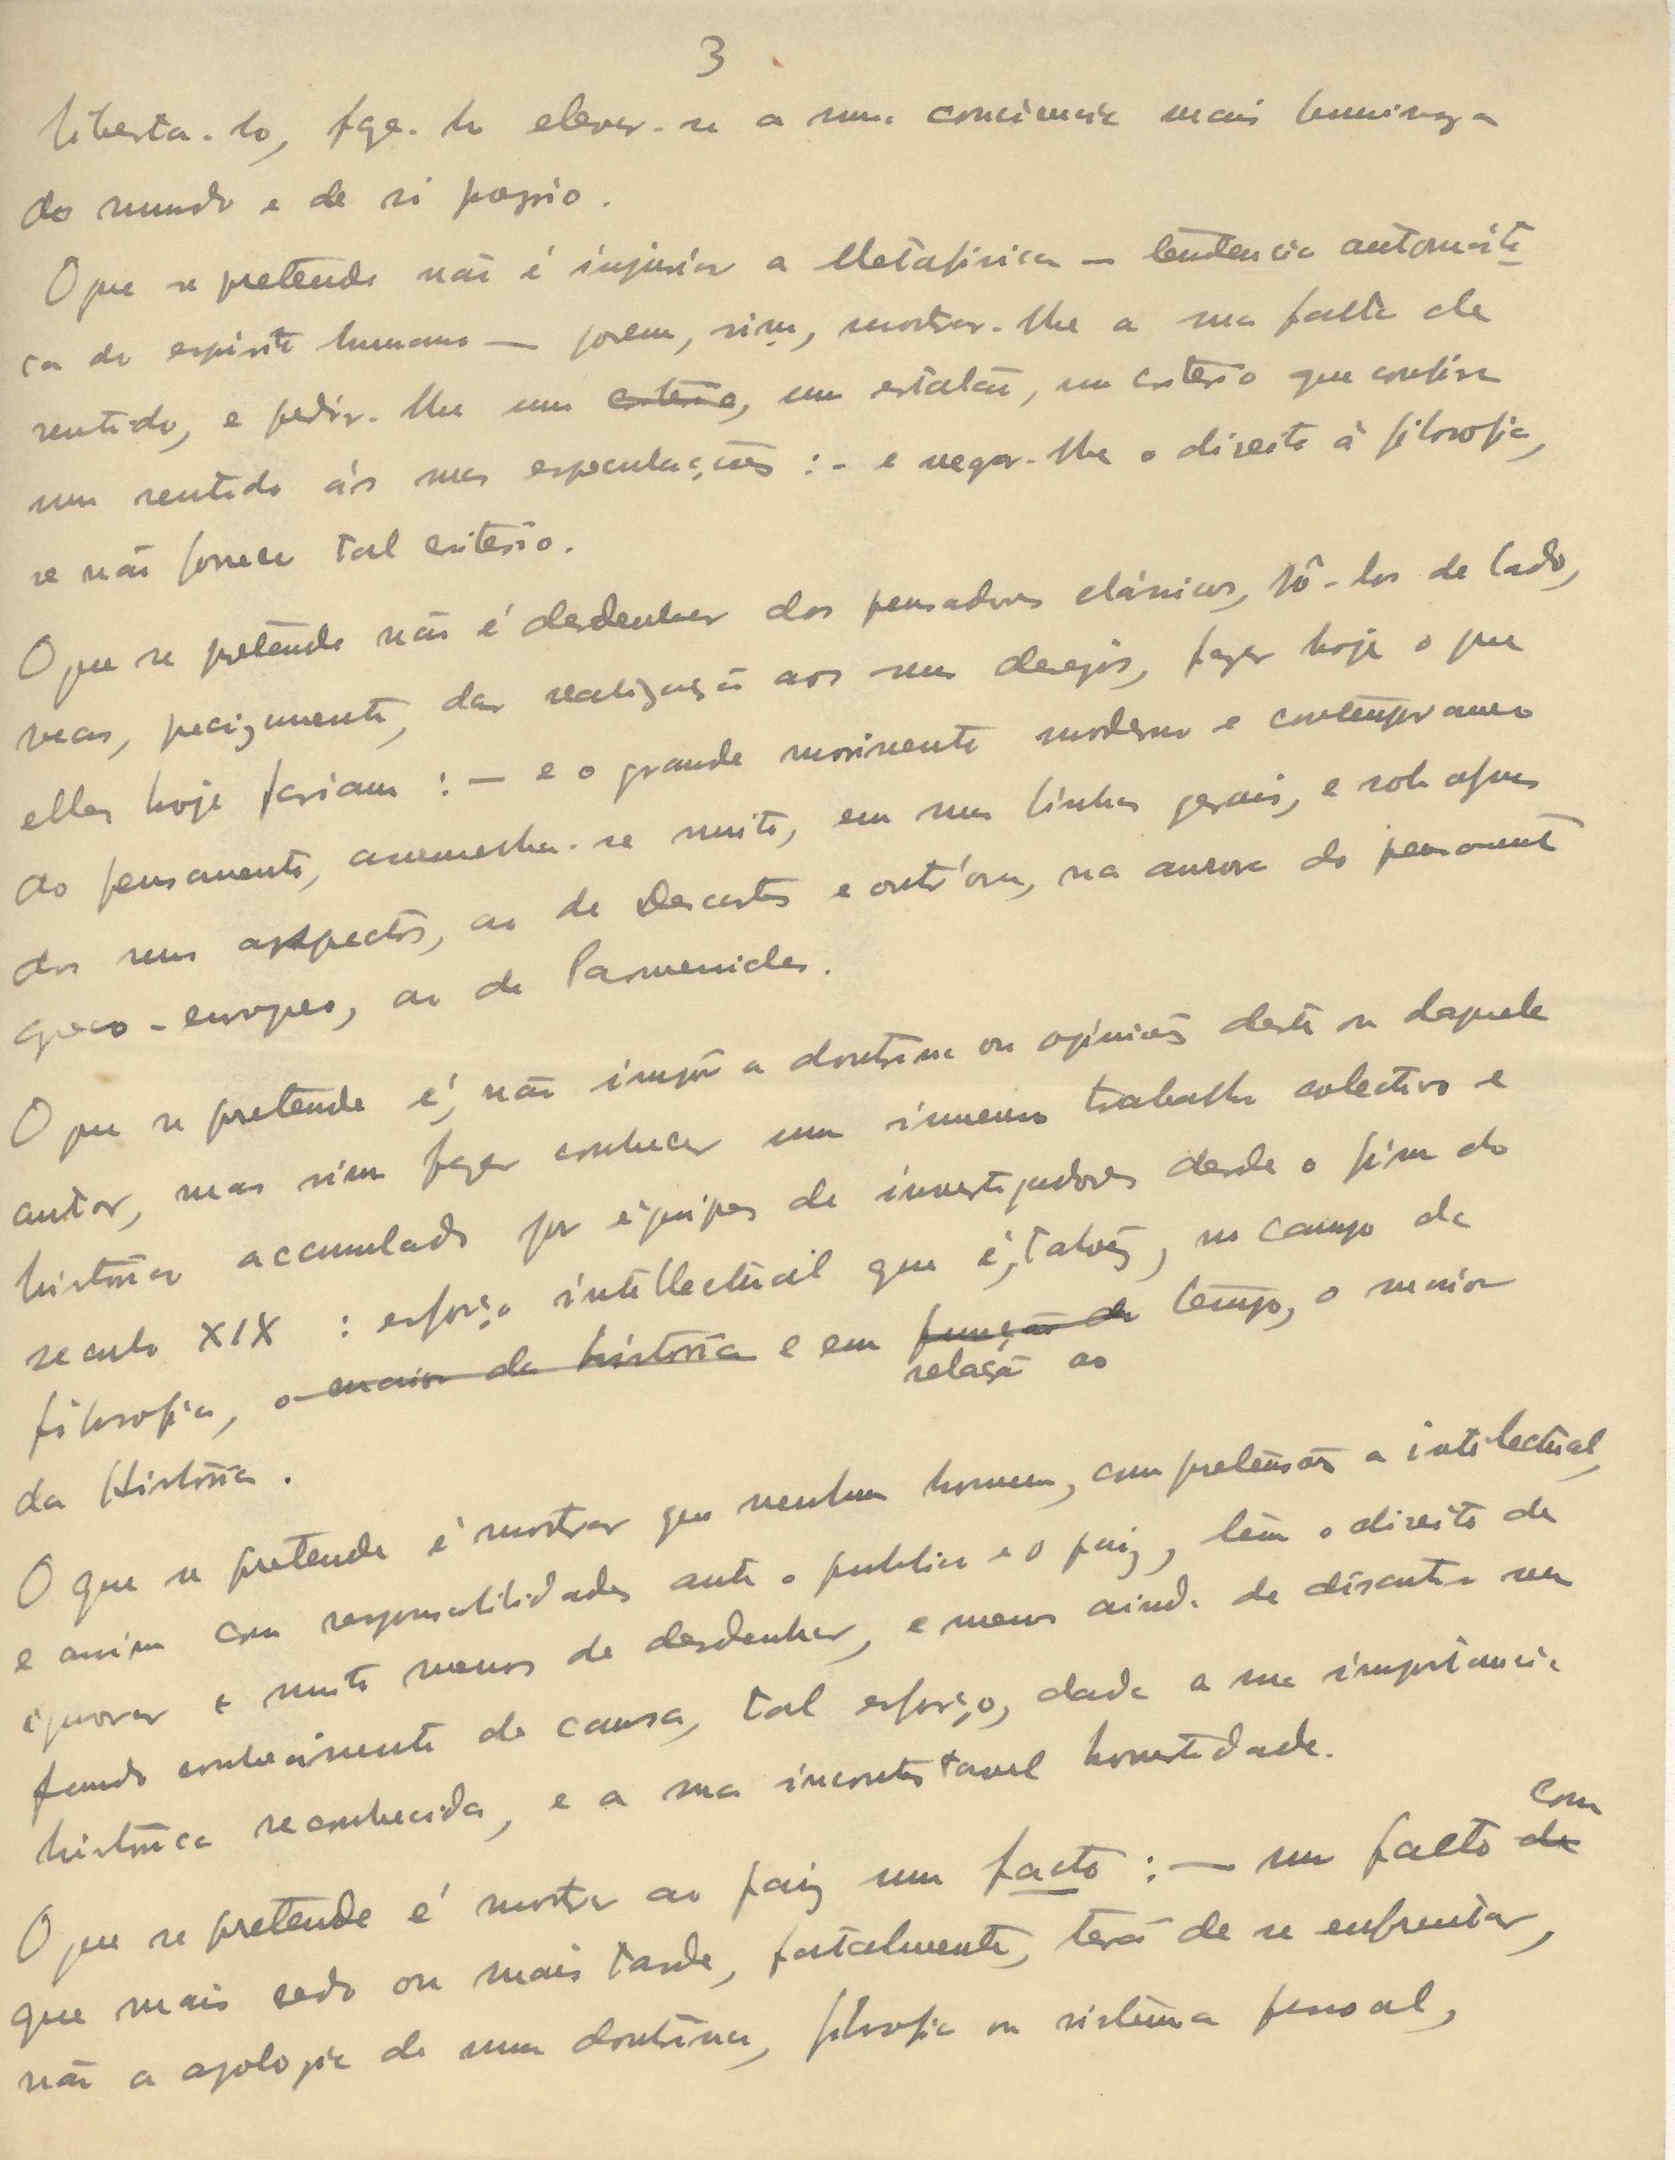 3
liberta-lo, faze-lo elevar-se a uma conciencia mais luminoza
do mundo e de si proprio.
O que se pretende não é injuriar a Metafisica — tendencia automáti
ca do espirito humano — porem, sim, mostrar-lhe a sua falta de
sentido, e pedir-lhe um criterio, um estalão, um criterio que confira
um sentido ás suas especulações : - e negar-lhe o direito à filosofia,
se não fornece tal criterio.
O que se pretende não é desdenhar dos pensadores clássicos, pô-los de lado,
mas, precizamente, dar realização aos seus desejos, fazer hoje o que
elles hoje fariam : — e o grande movimento moderno e contemporaneo
do pensamento, assemelha-se muito, em suas linhas gerais, e sob alguns
dos seus aspectos, ao de Descartes e outr'ora, na aurora do pensamento
greco-europeo, ao de Parmenides.
O que se pretende é, não impôr a doutrina ou opinião deste ou daquele
autor, mas sim fazer conhecer um immenso trabalho colectivo e
historico accumulado por équipes de investigadores desde o fim do
seculo XIX : esforço intellectual que é, talvêz, no campo da
filosofia, o maior da história e em função do tempo, o maior
relação ao
da História.
O que se pretende é mostrar que nenhum homem, com pretensões a intelectual,
e assim com responsabilidades ante o publico e o paiz, têm o direito de
ignorar e muito menos de desdenhar, e menos ainda de discutir sem
fundo conhecimento de causa, tal esforço, dada a sua importancia
histórica reconhecida, e a sua incontestavel honestidade.
com
O que se pretende é mostrar ao paiz um facto : — um facto de
que mais cedo ou mais tarde, fatalmente, terá de se enfrentar,
não a apologia de uma doutrina, filosofia ou sistema pessoal,